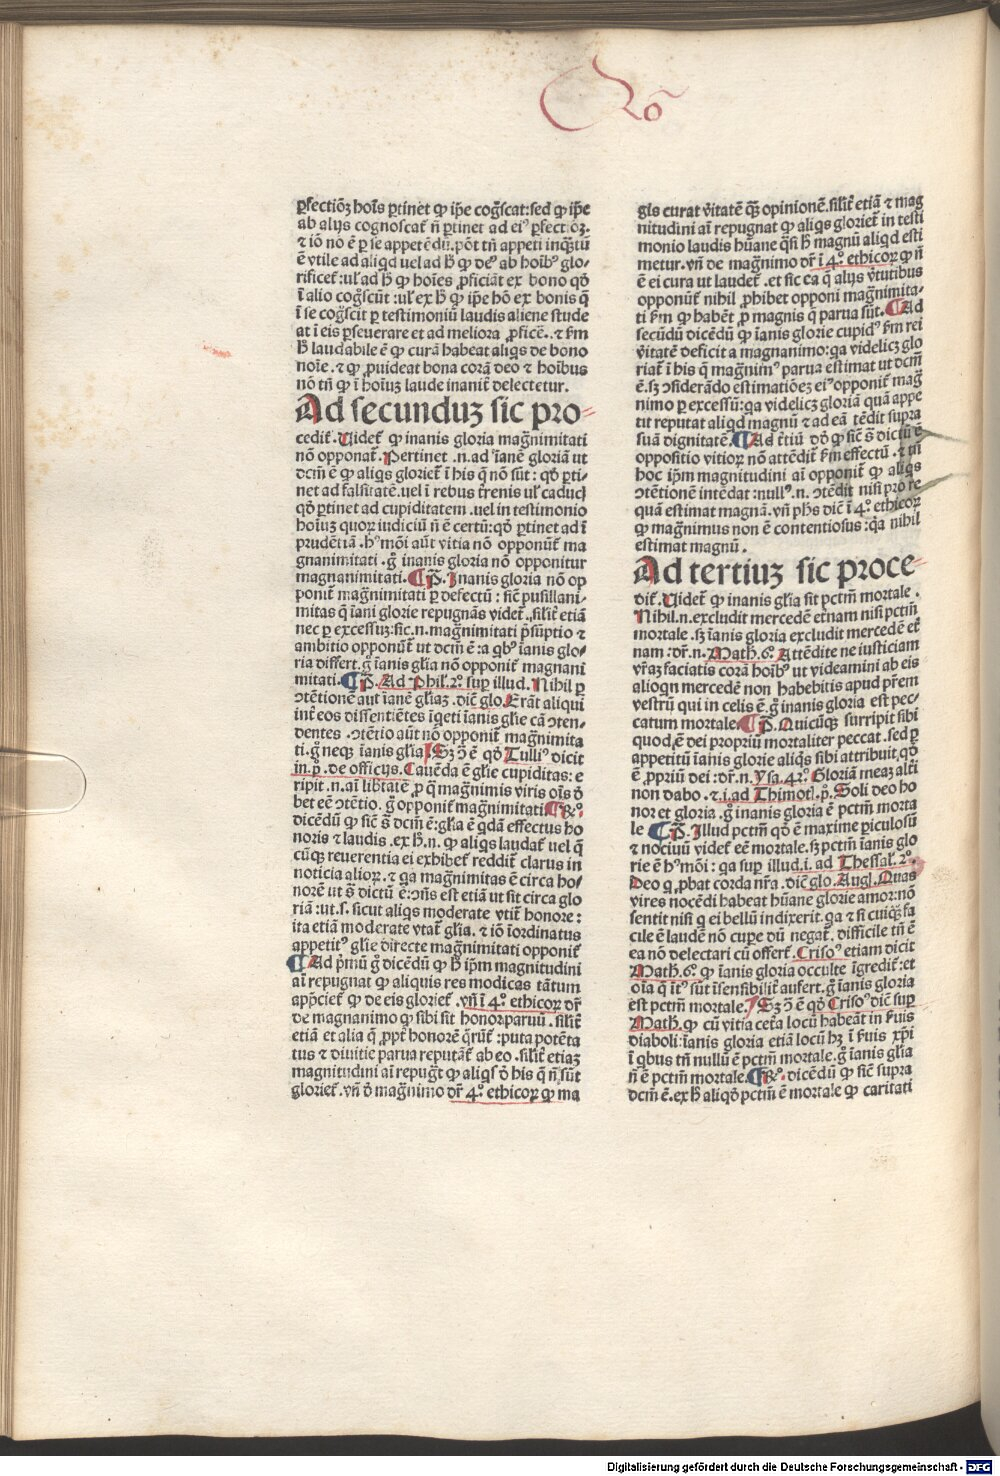 Qō
ꝑfectiōꝫ hoīs ꝑtinet ꝙ ip̄e cog̃scat:sed ꝙ ip̄e
ab alijs cognoscat̄ ñ ꝑtinet ad eiꝰ ꝑfectōꝫ.
⁊ iō nō ē ꝑ se appetēdū.pōt tñ appeti inq̄ꝫtū
ē vtile ad aliqd uel ad ħ ꝙ deꝰ ab hoībꝰ glo⸗
rificet̄:ul̓ ad ħ ꝙ hoīes ꝓficiāt ex bono qō
ī alio cog̃scūt :ul̓ ex ħ ꝙ ip̄e hō ex bonis q̄
ī se cog̃scit ꝑ testimoniū laudis aliene stude
at ī eis ꝑseuerare et ad meliora ꝓficē. ⁊ ẜm
ħ laudabile ē ꝙ curā habeat aliqs de bono
noīe. ⁊ ꝙ ꝓuideat bona corā deo ⁊ hoībus
nō tñ ꝙ ī hoīuꝫ laude inanit̄ delectetur.
Ad secunduꝫ sic pro⸗
cedit̄. Videt̄ ꝙ inanis gloria mag̃nimitati
nō opponat̄. Pertinet .n. ad īanē gloriā ut
dcm̄ ē ꝙ aliqs gloriet̄ ī his q̄ nō sūt : qō ꝑti⸗
net ad falsitatē. uel ī rebus t̄renis ul̓ caducꝭ
qō ꝑtinet ad cupiditatem .uel in testimonio
hoīuꝫ quoꝝ iudiciū ñ ē certū: qō ꝑtinet ad ī
prudētiā .hꝰmōi aūt vitia nō opponūt̄ ma
gnanimitati .g̊ inanis gloria nō opponitur
magnanimitati. ¶P̄. Inanis gloria nō op
ponit̄ mag̃nimitati ꝑ defectū : sic̄ pusillani⸗
mitas q̄ īani glorie repugnās videt̄ .silit̄ etiā
nec ꝑ excessuꝫ: sic .n. mag̃nimitati p̄sūptio ⁊
ambitio opponūt̄ ut dcm̄ ē :a qbꝰ īanis glo⸗
ria differt. g̊ īanis gl̓ia nō opponit̄ magnani
mitati. ¶P̄. Ad Phil̓. 2°. suꝑ illud. Nihil ꝑ
ɔtētionē aut īanē gl̓iaꝫ .dic̄ glo. Erāt aliqui
int̄ eos dissentiētes īqeti īanis gl̓ie cā ɔten⸗
dentes .ɔtētio aūt nō opponit̄ mag̃nimita
ti. g̊ neqꝫ īanis gl̓ia. Sꝫ ɔ̄ ē qō Tulliꝰ dicit
in. p̊. de officijs. Cauēda ē gl̓ie cupiditas: e
ripit .n. aī libtatē ꝓ q̄ mag̃nimis viris oīs d̄
bet eē ɔtētio. g̊ opponit̄ mag̃nimitati. ¶R̄°.
dicēdū ꝙ sic̄ s̄ dcm̄ ē: gl̓ia ē qdā effectus ho
noris ⁊ laudis .ex ħ .n. ꝙ aliqs laudat̄ uel q̄
cūqꝫ reuerentia ei exhibet̄ reddit̄ clarus in
noticia alioꝝ. ⁊ qa magnimitas ē circa ho⸗
norē ut s̄ dictū ē: ɔñs est etiā ut sit circa glo
riā :ut .s. sicut aliqs moderate vtit̄ honore :
ita etiā moderate vtat̄ gl̓ia. ⁊ iō īordinatus
appetitꝰ gl̓ie directe mag̃nimitati opponit̄
¶Ad p̄mū g̊ dicēdū ꝙ ħ ip̄m magnitudini
aī repugnat ꝙ aliquis res modicas tātum
app̄ciet̄ ꝙ de eis gloriet̄ .vñ ī 4°. ethicoꝝ dr̄
de magnanimo ꝙ sibi sit honor paruū .silit̄
etiā et alia q̄ ꝓpt̄ honorē q̄rūt̄ :puta potēta
tus ⁊ diuitie parua reputāt̄ ab eo .silit̄ etiaꝫ
magnitudini aī repug̃t ꝙ aliqs d̄ his q̄ ñ sūt
gloriet̄. vñ d̄ mag̃nimo dr̄ 4°. ethicoꝝ ꝙ ma
gis curat v̄itatē q̄ꝫ opinionē. silit̄ etiā ⁊ mag
nitudini aī repugnat ꝙ aliqs gloriet̄ in testi
monio laudis hūane q̄si ħ magnū aliqd esti
metur .vñ de mag̃nimo dr̄ ī 4°. ethicoꝝ ꝙ ñ
ē ei cura ut laudet̄ .et sic ea q̄ alijs v̄tutibus
opponūt̄ nihil ꝓhibet opponi mag̃nimita⸗
ti ẜm ꝙ habēt ꝓ magnis q̄ parua sūt. ¶Ad
secūdū dicēdū ꝙ īanis glorie cupidꝰ ẜm rei
v̄itatē deficit a magnanimo: qa videlicꝫ glo
riat̄ ī his q̄ magnimꝰ parua estimat ut dcm̄
ē. sꝫ ɔsiderādo estimatiōeꝫ eiꝰ opponit̄ mag̃
nimo ꝑ excessū: qa videlicꝫ gloriā quā appe
tit reputat aliqd magnū ⁊ ad eā tēdit supra
suā dignitatē. ¶Ad t̄tiū dō ꝙ sic̄ s̄ dictū ē
oppositio vitioꝝ nō attēdit̄ ẜm effectū .⁊ tñ
hoc ip̄m magnitudini aī opponit̄ ꝙ aliqs
ɔtētionē intēdat :nullꝰ .n. ɔtēdit nisi pro re
quā estimat magnā. vñ ph̄s dic̄ ī 4°. ethicoꝝ
ꝙ mag̃nimus non ē contentiosus : qa nihil
estimat magnū.
Ad tertiuꝫ sic proce⸗
dit̄. Videt̄ ꝙ inanis gl̓ia sit pctm̄ mortale .
Nihil .n. excludit mercedē et̄nam nisi pctm̄
mortale. sꝫ īanis gloria excludit mercedē et̄
nam :dr̄ .n. Math. 6°. Attēdite ne iusticiam
vr̄aꝫ faciatis corā hoībꝰ ut videamini ab eis
alioqn mercedē non habebitis apud pr̄em
vestrū qui in celis ē. g̊ inanis gloria est pec⸗
catum mortale. ¶P̄. Quicūqꝫ surripit sibi
quod ē dei propriū mortaliter peccat. sed ꝑ
appetitū īanis glorie aliqs sibi attribuit qō
ē ꝓpriū dei :dr̄ .n. Ysa. 42°. Gloriā meaꝫ alt̄i
non dabo .⁊ .i. ad Thimotꝭ. p̊. Soli deo ho
nor et gloria. g̊ inanis gloria ē pctm̄ morta
le ¶P̄. Illud pctm̄ qō ē maxime ꝑiculosū
⁊ nociuū videt̄ eē mortale. sꝫ pctm̄ īanis glo
rie ē hꝰmōi : qa suꝑ illud .i. ad Thessal̓. 2°.
Deo q ꝓbat corda nr̄a .dic̄ glo. Augꝭ. Quas
vires nocēdi habeat hūane glorie amor: nō
sentit nisi q ei bellū indixerit. qa ⁊ si cuiqꝫ fa
cile ē laudē nō cuꝑe dū negat̄. difficile tñ ē
ea nō delectari cū offert̄. Crisoꝰ etiam dicit
Math. 6°. ꝙ īanis gloria occulte īgredit̄ :et
oīa q̄ ītꝰ sūt īsensibilit̄ aufert. g̊ īanis gloria
est pctm̄ mortale. Sꝫ ɔ̄ ē qō Crisoꝰ dic̄ suꝑ
Math. ꝙ cū vitia cet̄a locū habeāt in ẜuis
diaboli: īanis gloria etiā locū hꝫ ī ẜuis xp̄i
ī qbus tñ nullū ē pctm̄ mortale. g̊ īanis gl̓ia
ñ ē pctm̄ mortale. ¶R̄°. dicēdū ꝙ sic̄ supra
dcm̄ ē. ex ħ aliqō pctm̄ ē mortale ꝙ caritati
Digitalisierung gefördert durch die Deutsche Forschungsgemeinschaft - DFG